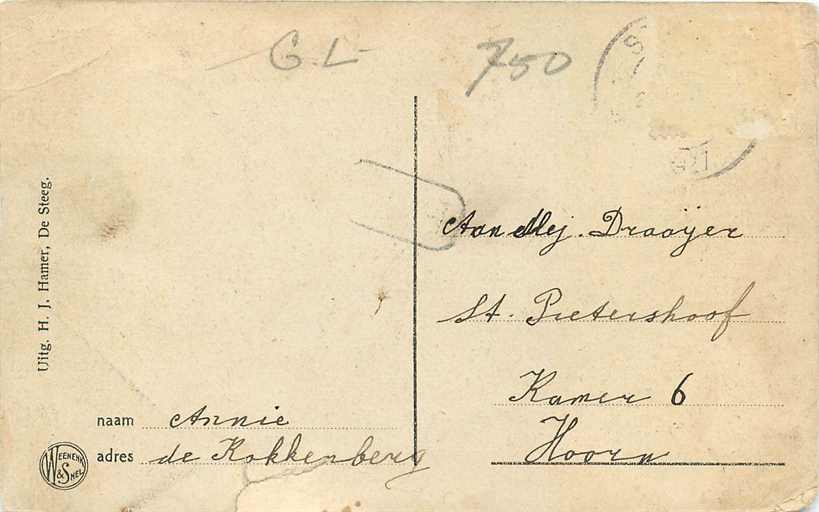 GL
750
Uitg. H. J. Hamer, De Steeg.
Aan Mej. Draaijer
St. Pietershoof
Kamer 6
Hoorn
naam Annie
adres de Kokkenberg
WEENENK & SNEL